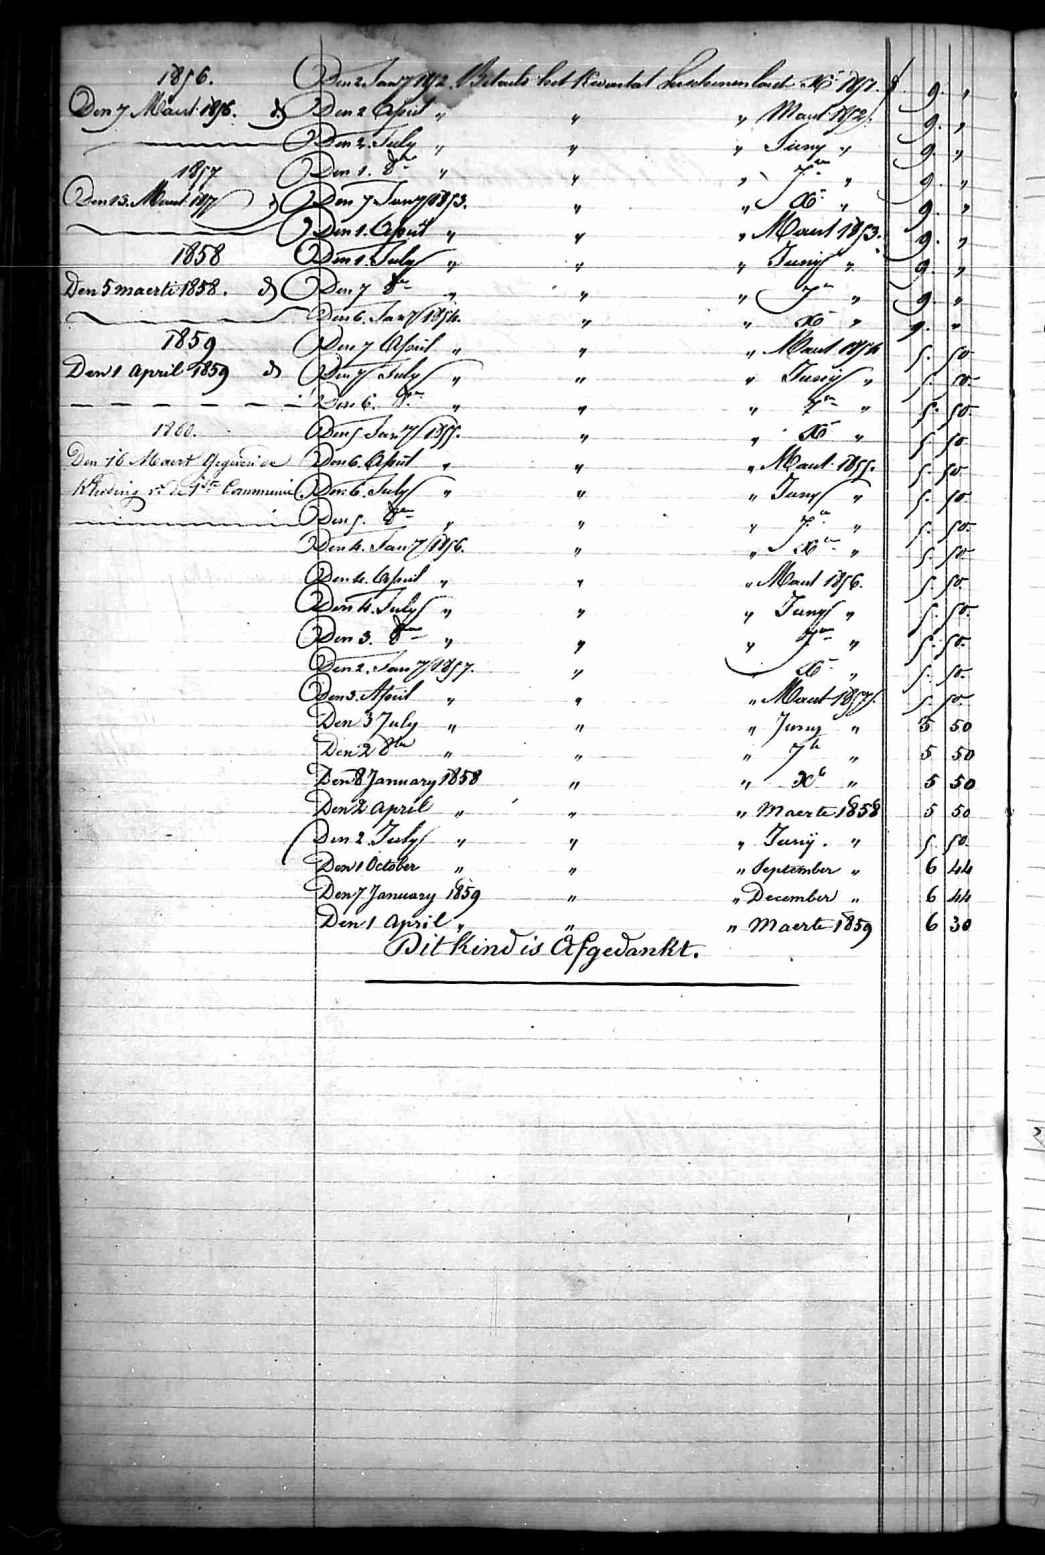 1856.
Den 7 Maart 1856. d°
1857
Den 13. Maart 1857 d°
1858
Den 5 maerte 1858. d°
1859
Den 1 April 1859 d°
1860.
Den 16 Maart Gegeven de
Kleeding v. de 1ste Communie
Den 2. Jany 1852. Betaald het Kwartaal X 1851. f 9. "
Den 2 April " " " Maart 1852. 9. "
Den 2. July " " " Juny " 9. "
Den 1. 8er " " " 7er " 9. "
Den 7 Jany 1853. " " Xr " 9. "
Den 1. April " " " Maart 1853. 9. "
Den 1. July " " " Juny " 9. "
Den 7 8er " " " 7er " 9. "
Den 6. Jany 1854. " " Xr " 9. "
Den 7 April " " " Maart 1854 5. 50
Den 7 July " " " Juny " 5. 50
Den 6. 8er " " " 7er " 5. 50
Den 5 Jany 1855. " " Xr " 5 50
Den 6. April " " " Maart 1855. 5. 50
Den 6. July " " " Juny " 5. 50
Den 5. 8er " " " 7er " 5. 50
Den 4. Jany 1856. " " Xr " 5. 50
Den 4. April " " " Maart 1856. 5. 50
Den 4. July " " " Juny " 5. 50
Den 3. 8er " " " 7er " 5. 50
Den 2. Jany 1857. " " Xr " 5. 50
Den 3. April " " " Maart 1857. 5. 50
Den 3 July " " " Juny " 5 50
Den 2 8ber " " " 7b " 5 50
Den 8 January 1858 " " Xb " 5 50
Den 2 April " " " Maerte 1858 5 50
Den 2 July " " " Junij. " 5. 50.
Den 1 October " " " September " 6 44
Den 7 January 1859 " " December " 6 44
Den 1 April " " " Maerte 1859 6 30
Dit Kind is Afgedankt.